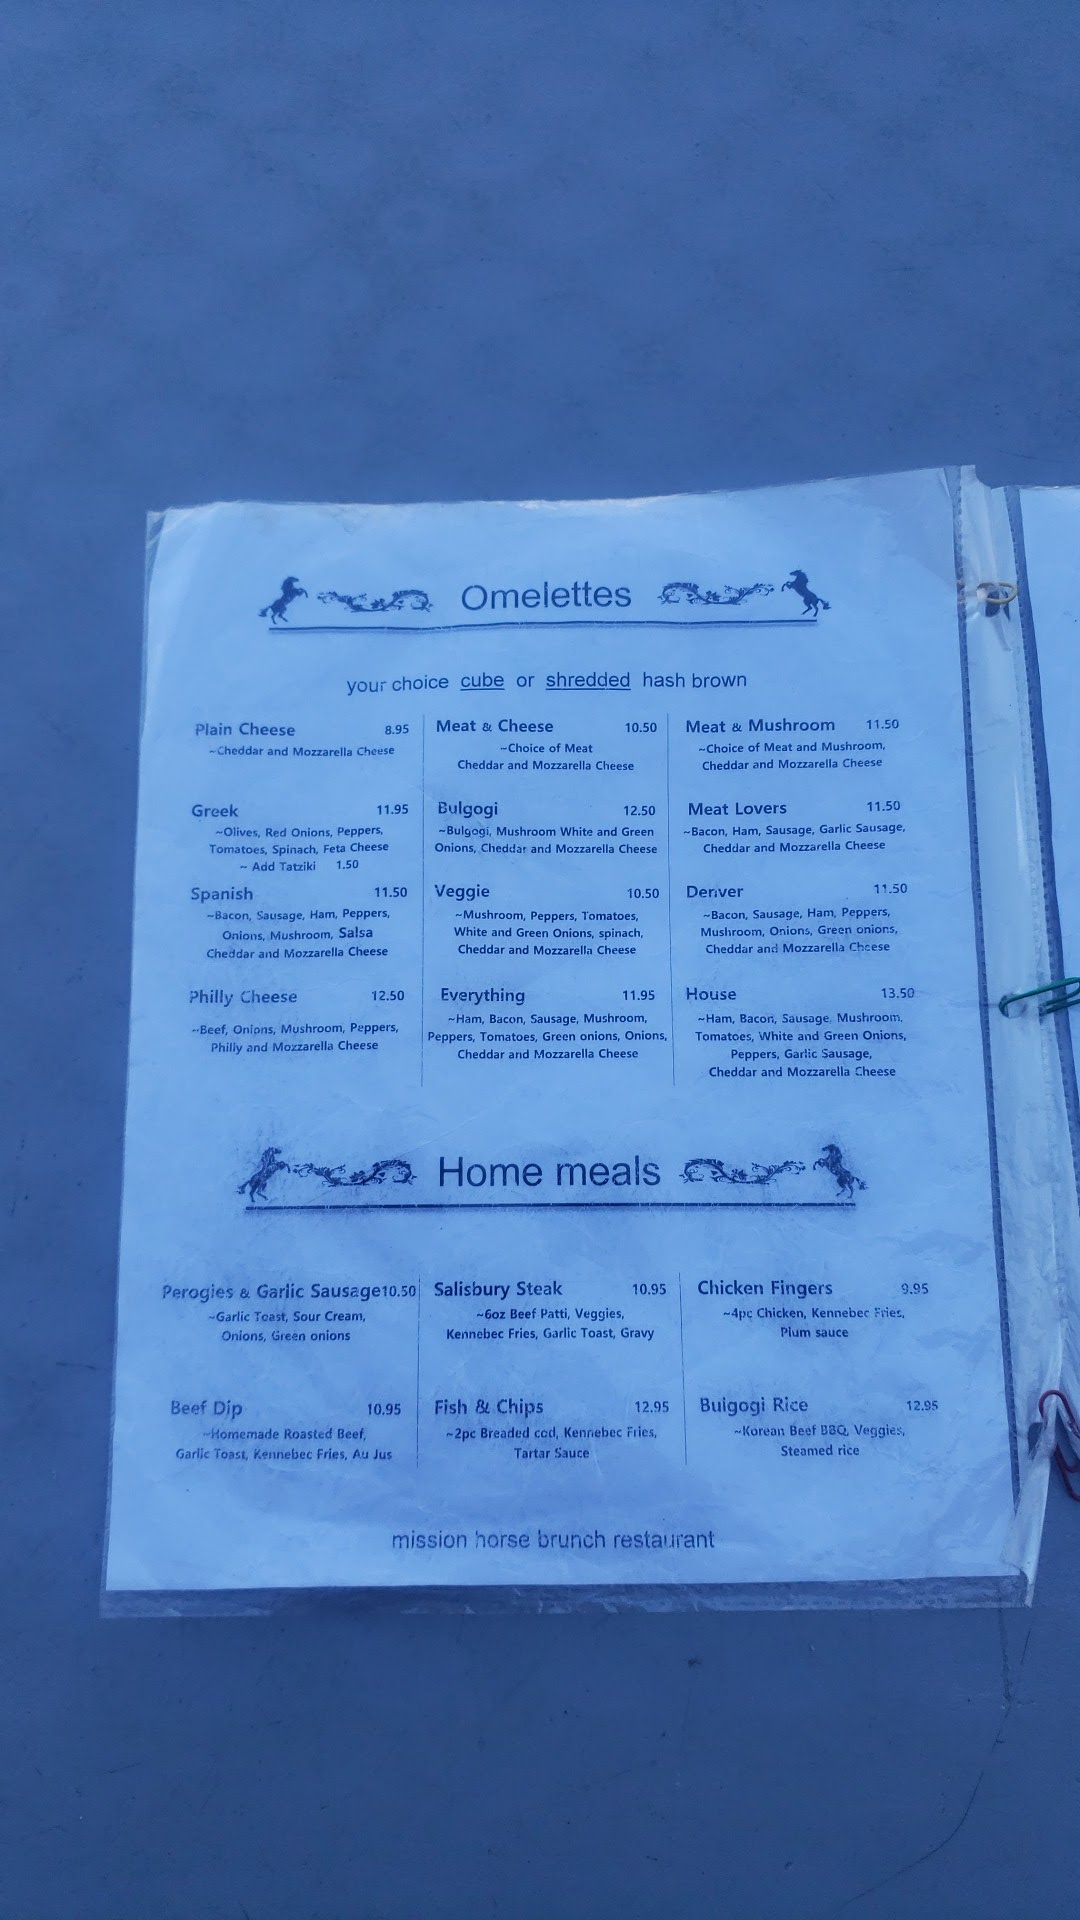 Omelettes
your choice cube or shredded hash brown
Plain Cheese 8.95
~Cheddar and Mozzarella Cheese
Meat & Cheese 10.50
~Choice of Meat
Cheddar and Mozzarella Cheese
Meat & Mushroom 11.50
~Choice of Meat and Mushroom,
Cheddar and Mozzarella Cheese
Greek 11.95
~Olives, Red Onions, Peppers,
Tomatoes, Spinach, Feta Cheese
~ Add Tatziki 1.50
Bulgogi 12.50
~Bulgogi, Mushroom White and Green
Onions, Cheddar and Mozzarella Cheese
Meat Lovers 11.50
~Bacon, Ham, Sausage, Garlic Sausage,
Cheddar and Mozzarella Cheese
Spanish 11.50
~Bacon, Sausage, Ham, Peppers,
Onions, Mushroom, Salsa
Cheddar and Mozzarella Cheese
Veggie 10.50
~Mushroom, Peppers, Tomatoes,
White and Green Onions, spinach,
Cheddar and Mozzarella Cheese
Denver 11.50
~Bacon, Sausage, Ham, Peppers,
Mushroom, Onions, Green onions,
Cheddar and Mozzarella Cheese
Philly Cheese 12.50
~Beef, Onions, Mushroom, Peppers,
Philly and Mozzarella Cheese
Everything 11.95
~Ham, Bacon, Sausage, Mushroom,
Peppers, Tomatoes, Green onions, Onions,
Cheddar and Mozzarella Cheese
House 13.50
~Ham, Bacon, Sausage, Mushroom,
Tomatoes, White and Green Onions,
Peppers, Garlic Sausage,
Cheddar and Mozzarella Cheese
Home meals
Perogies & Garlic Sausage 10.50
~Garlic Toast, Sour Cream,
Onions, Green onions
Salisbury Steak 10.95
~6oz Beef Patti, Veggies,
Kennebec Fries, Garlic Toast, Gravy
Chicken Fingers 9.95
~4pc Chicken, Kennebec Fries,
Plum sauce
Beef Dip 10.95
~Homemade Roasted Beef,
Garlic Toast, Kennebec Fries, Au Jus
Fish & Chips 12.95
~2pc Breaded cod, Kennebec Fries,
Tartar Sauce
Bulgogi Rice 12.95
~Korean Beef BBQ, Veggies,
Steamed rice
mission horse brunch restaurant